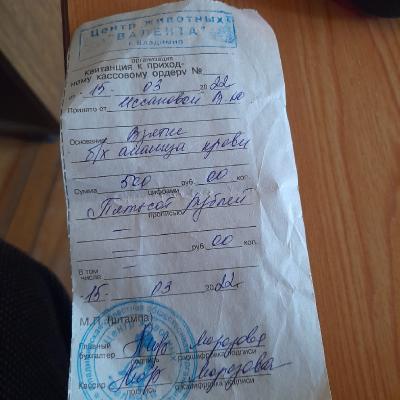 Центр животных
"ВАЛЕНТА"
г. Владимир
организация
квитанция к приход-
ному кассовому ордеру №
"15" 03 2022г
Принято от Иссановой В.Ю
Основание Взятие
б/х анализа крови
Сумма 500 руб. 00 коп.
цифрами
Пятьсот рублей
прописью
— руб. 00 коп.
В том
числе —
"15" 03 2022г.
М.П. (штампа)
Главный
бухгалтер Мор Морозова
подпись расшифровка подписи
Кассир Мор Морозова
подпись расшифровка подписи